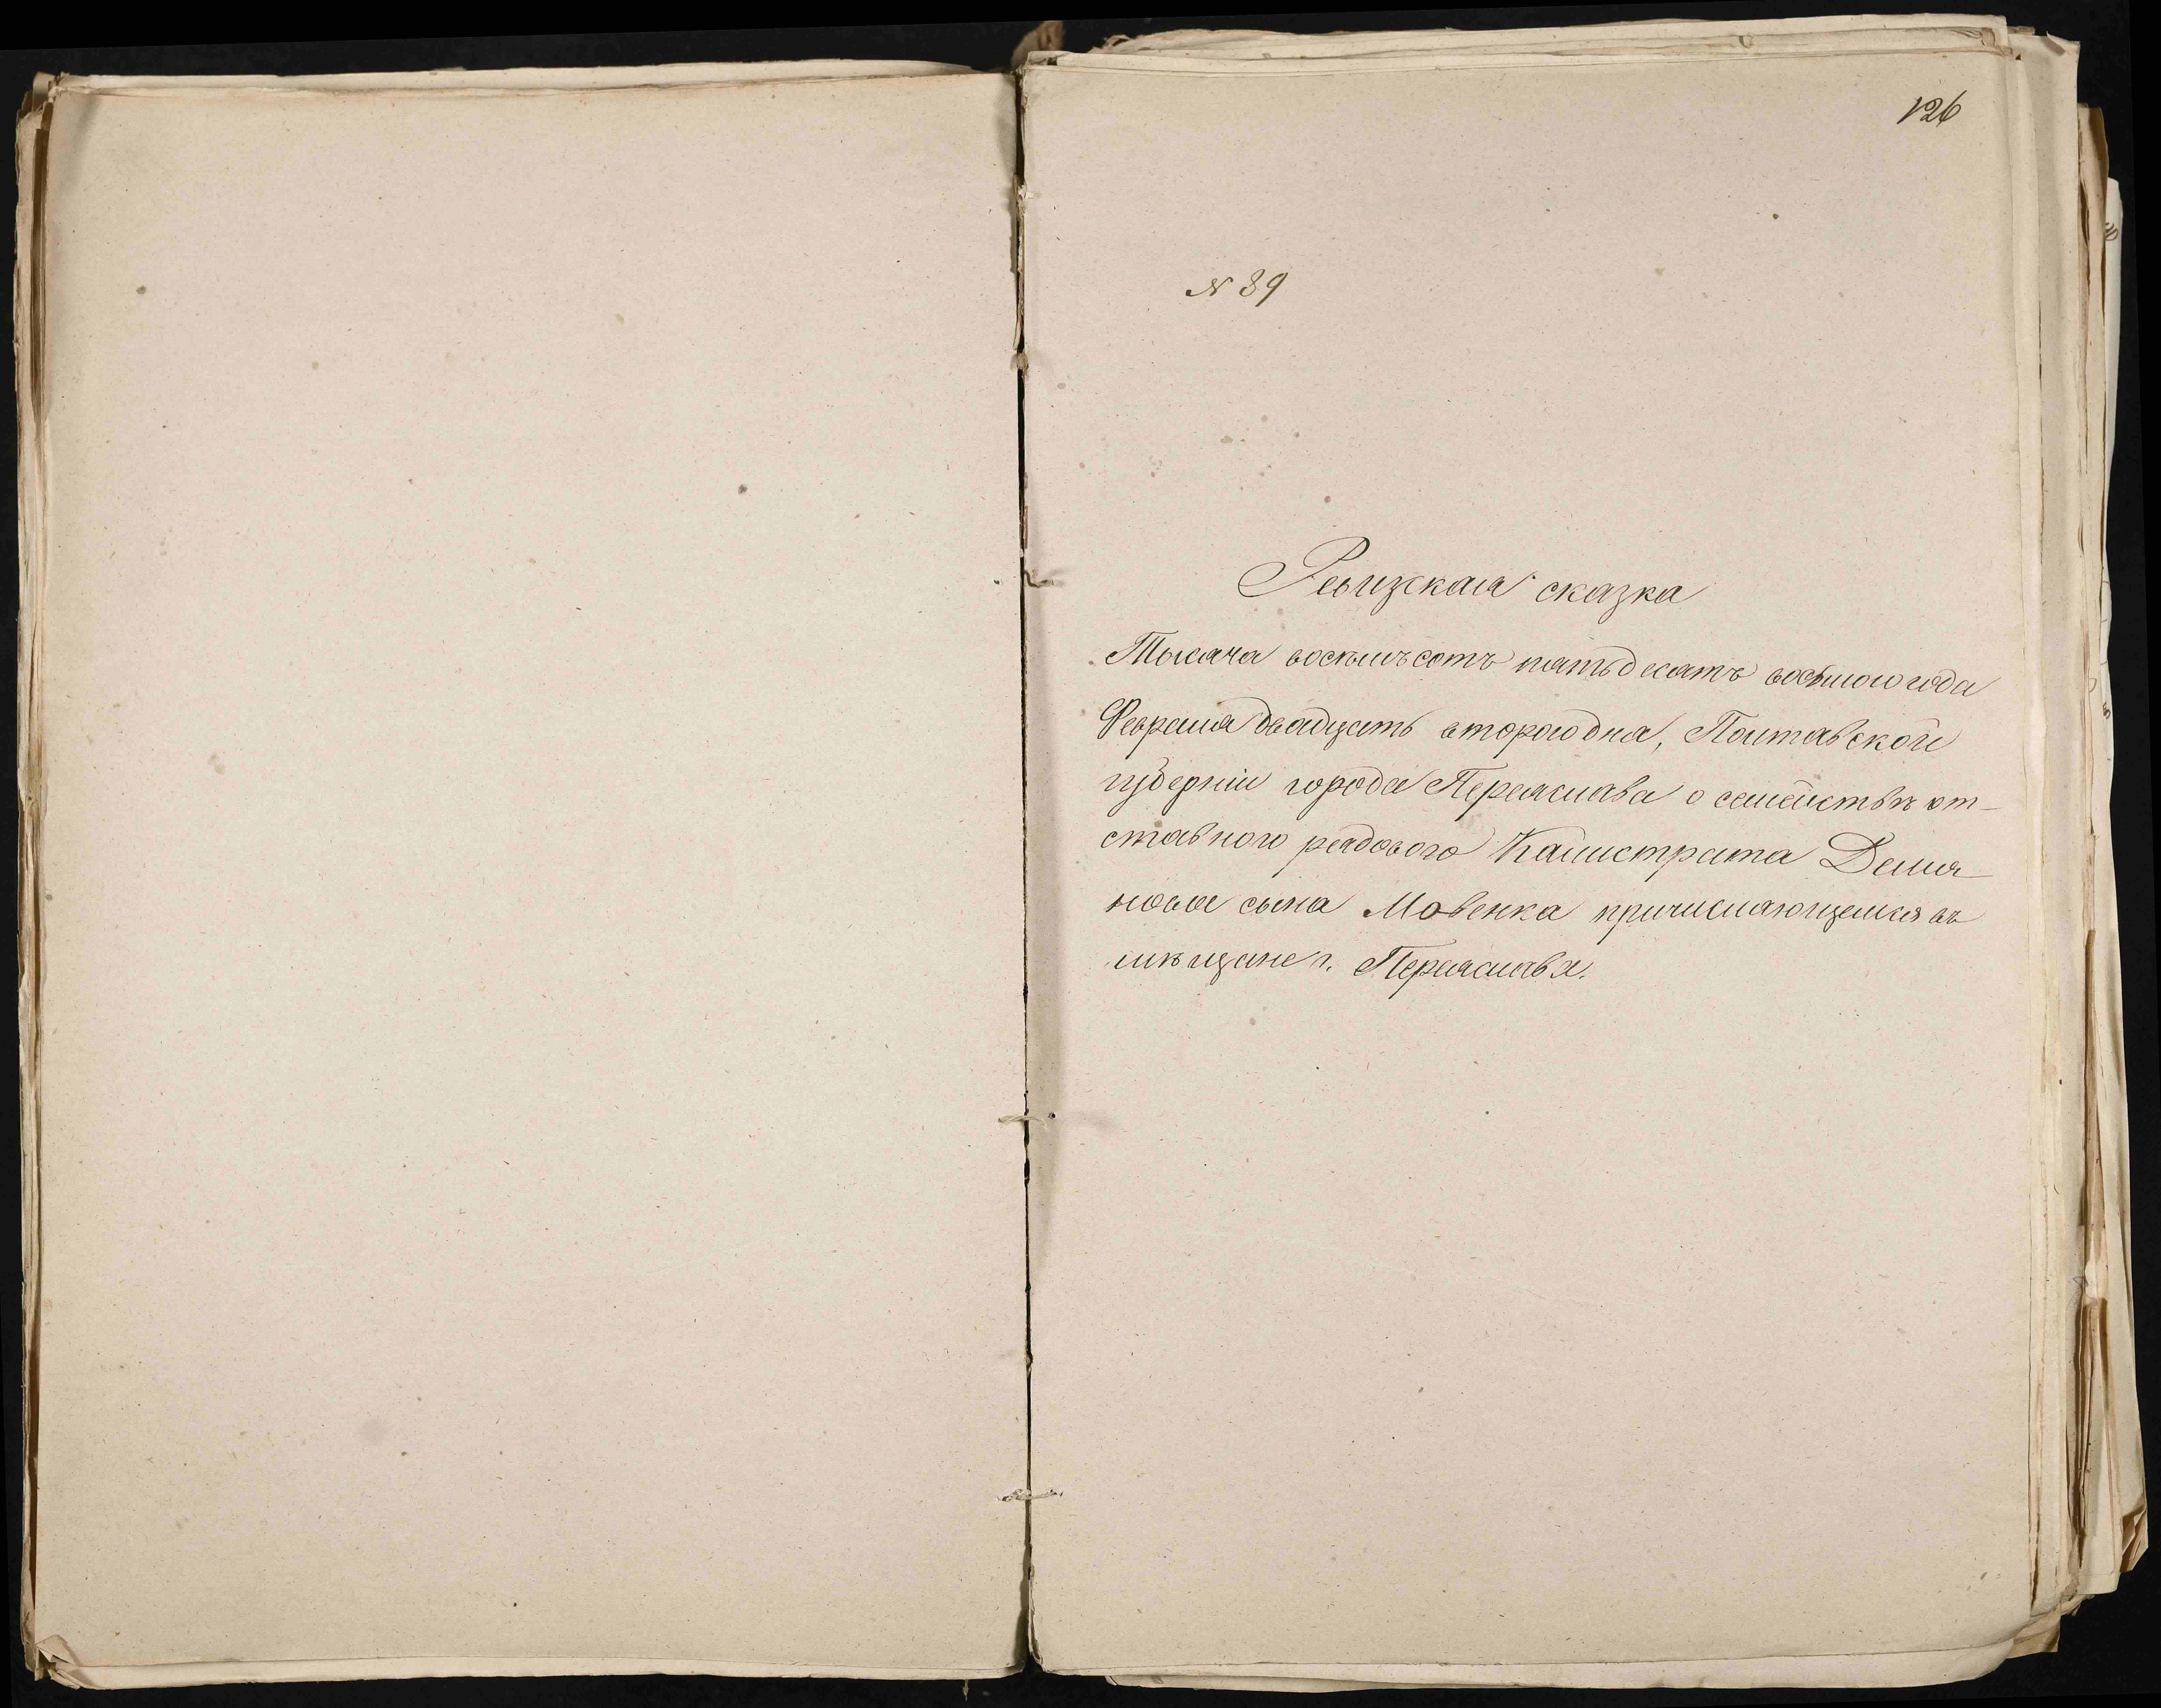 126
N 89
Ревизская сказка
Тысяча восемьсотъ пятьдесятъ восьмого года
Февраля двадцать второго дня, Полтавской
губерніи города Переяслава о семействѣ от-
ставного рядового Калистрата Демя-
нова сына Мовенка причисляющемся въ
мѣщане г. Переяслава.